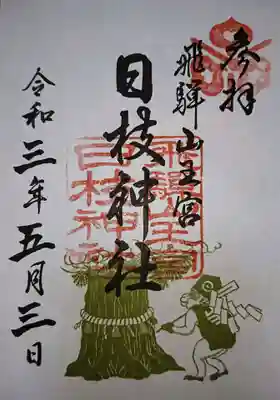 参拝
飛騨山王宮
日枝神社
令和三年五月三日